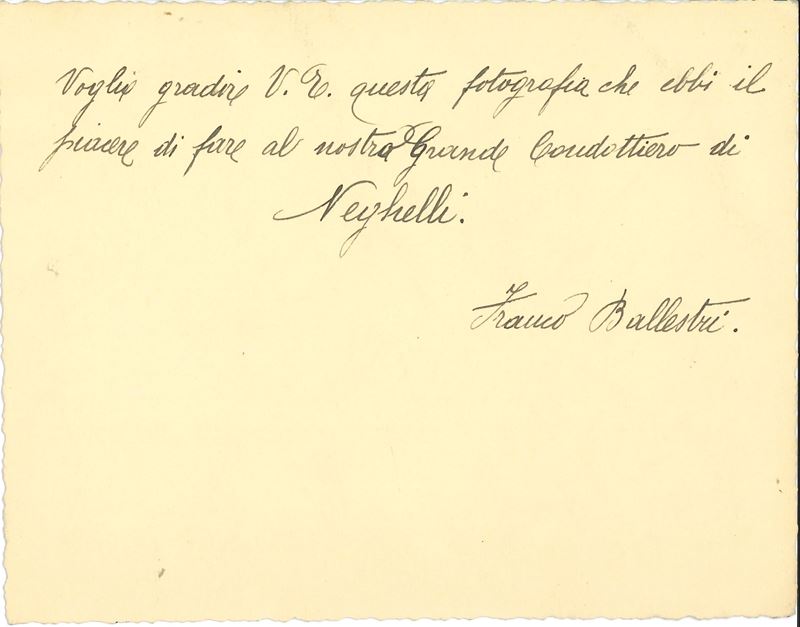 Voglia gradire V. E. questa fotografia che ebbi il
piacere di fare al nostro Grande Condottiero di
Neghelli.
Franco Ballestri.